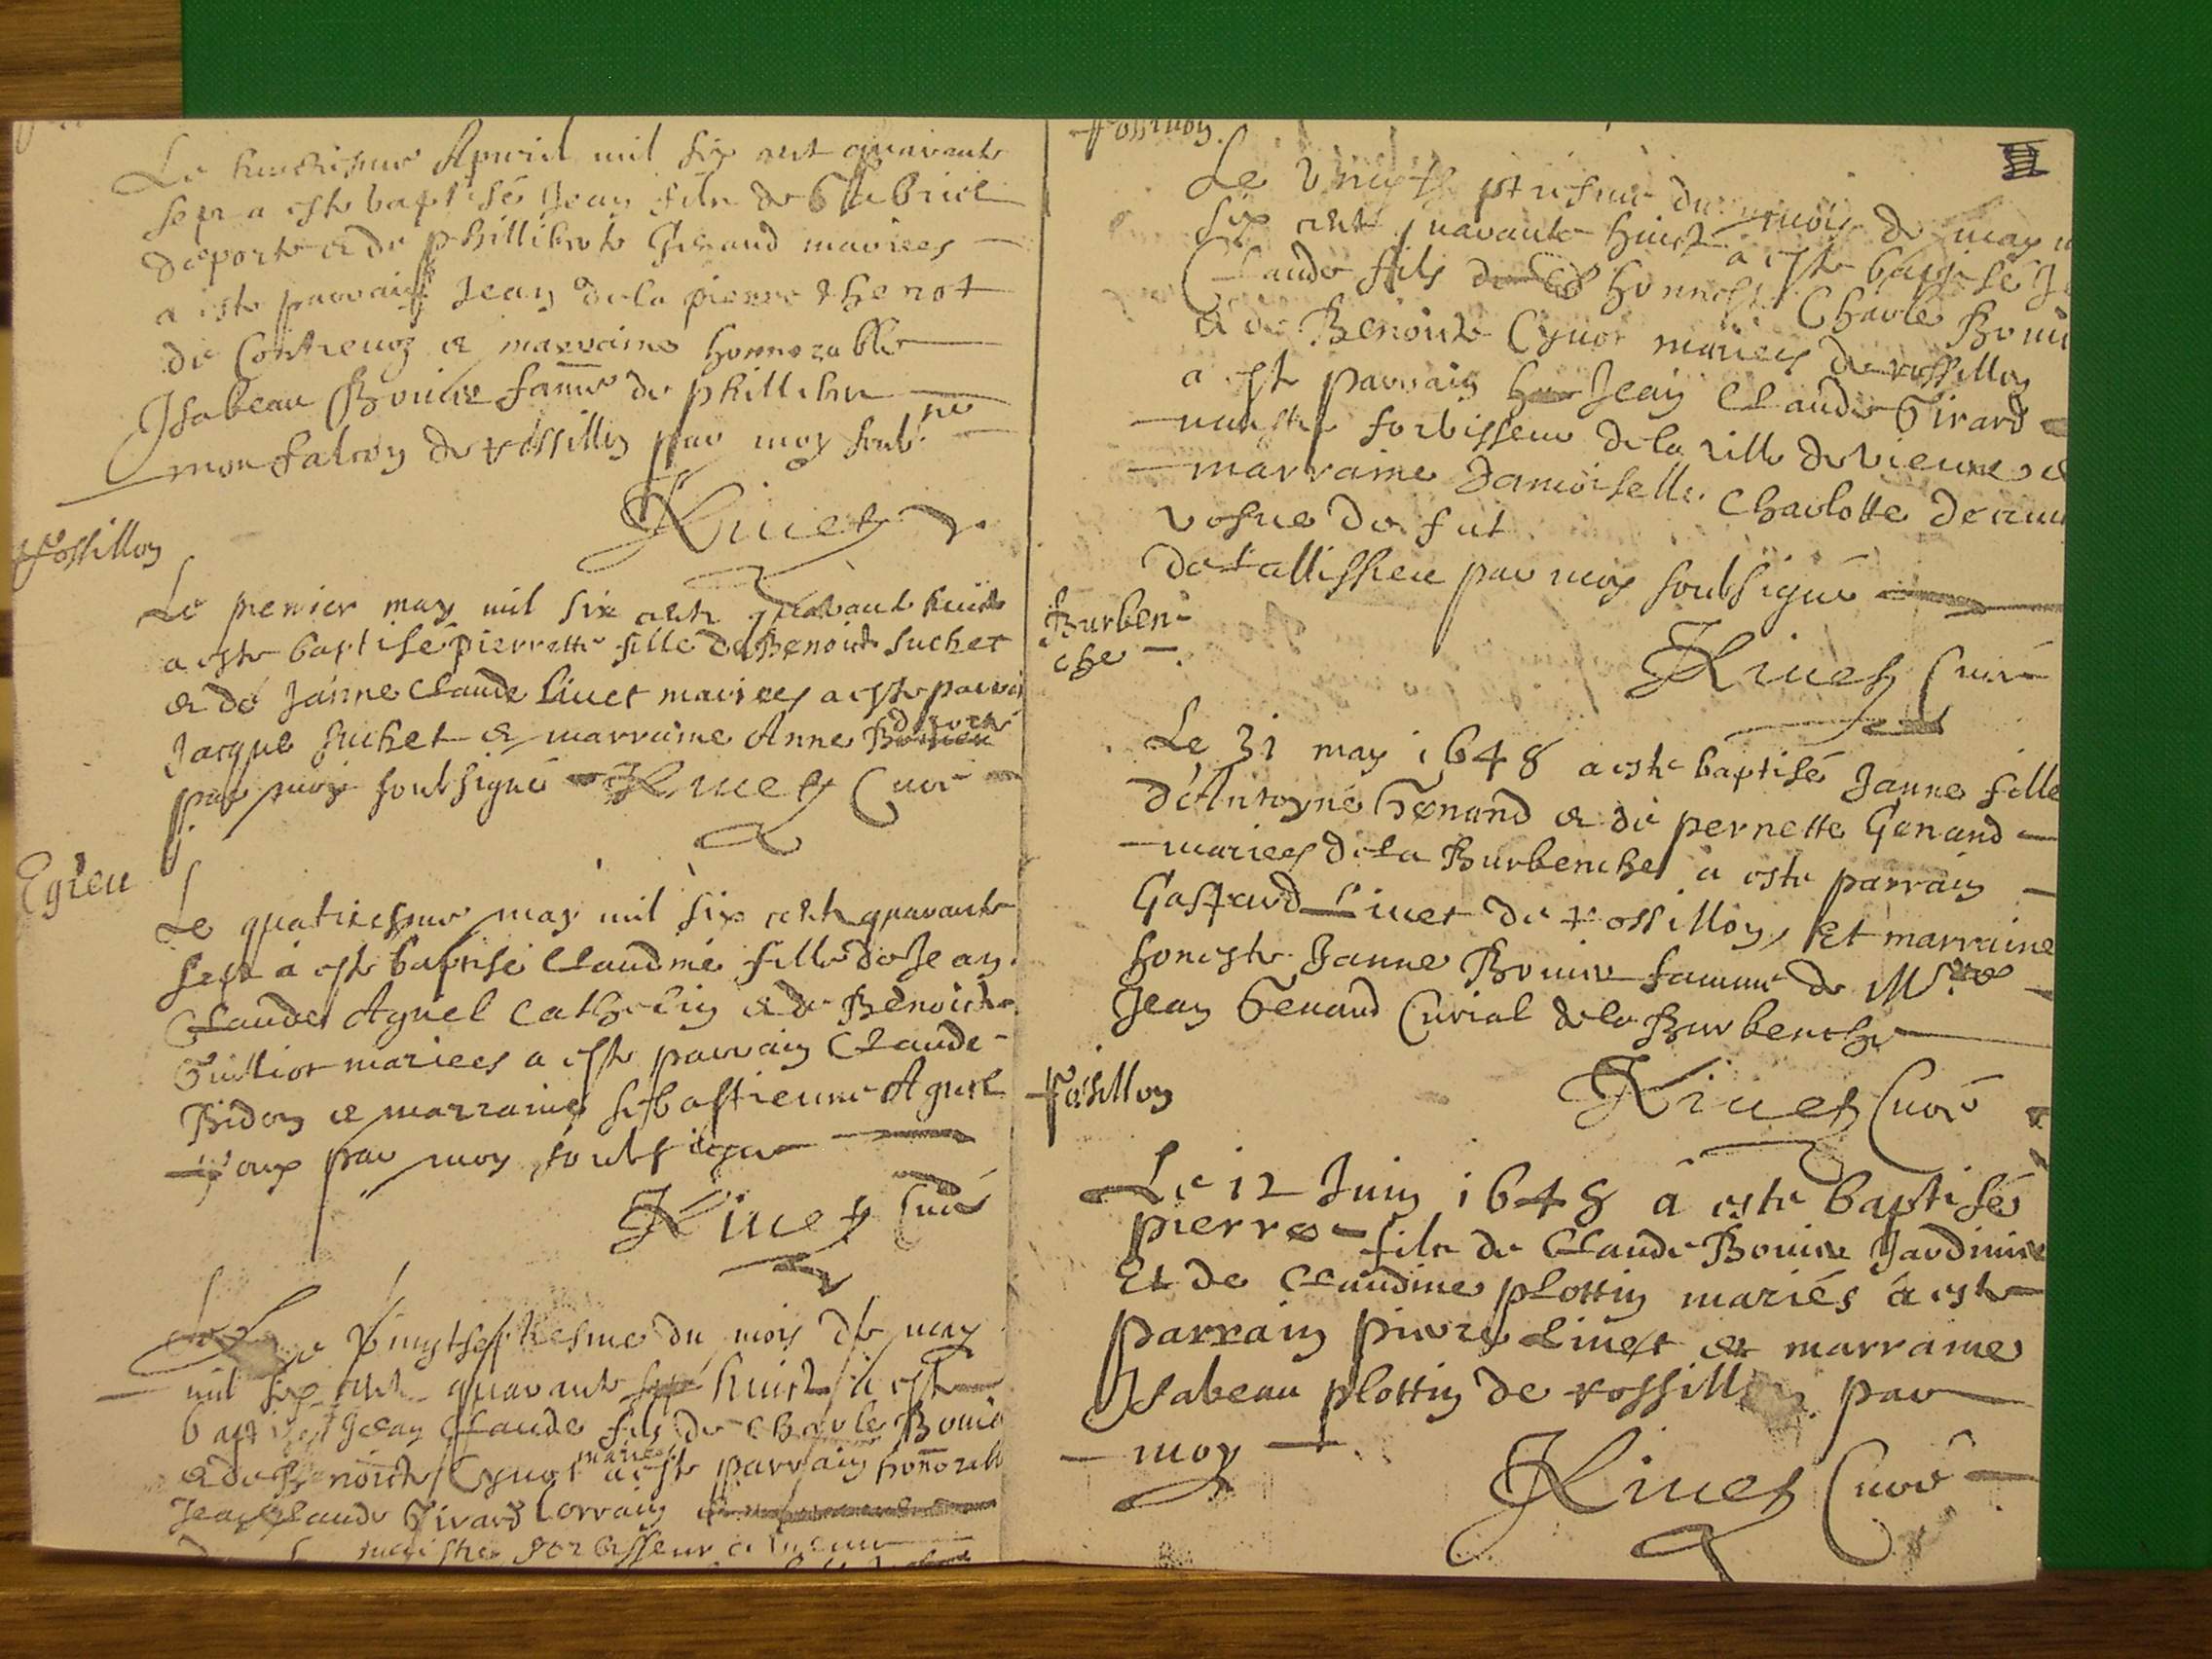 Le huictiesme Apvril mil six cent quarante
sept a este baptisé Jean fils de Gabriel
deporte & de philliberte Genand mariees
a este parrain Jean dela pierre thenot
de Contrevoz & marraine honnorable
Isabeau Bouvie fame de phillibert
monfalcon de rossillon par moy soubne
Rivet
rossillon
Le premier may mil six cent quarante huict
a este baptisé pierrette fille de Benoict suchet
& de Janne Claude Livet mariees a este parrain
Jacque suchet & marraine Anne deporte
par moy soubsigné Rivet Curé
Egieu
Le quatriesme may mil six cent quarante
sept a este baptisé Claudine fille de Jean
Claude Aguel & de Benoicte
Guilliot mariees a este parrain Claude
Bidon & marraine sebastienne Aguel
par moy soubsigne
Rivet Curé
Le vingtseptiesme du mois de may
mil six cent quarante huict a este
baptisé Jean Claude fils de Charle Bouvie
& de Benoicte Cynot mariees a este parrain honnorable
Jean Claude Girard Lorrain
maistre forbisseur a vienne
rossillon
Le vingtseptiesme du mois de may
six cent quarante huict a este baptisé
Claude fils de honneste Charle Bouvie
& de Benoicte Cynot mariees de rossillon
a este parrain Jean Claude Girard
maistre forbisseur de la ville de vienne &
marraine Damoiselle Charlotte de
vefve de fut
de tallissieu par moy soubsigné
Rivet Curé
Burben-
che
Le 31 may 1648 a este baptisé Janne fille
d'Antoyne Genand & de pernette Genand
mariees dela Burbenche a este parrain
Gaspard Livet de rossillon, Et marraine
honeste Janne Bouvie famme de Mtre
Jean Genand Curial dela Burbenche
Rivet Curé
rossillon
Le 12 Juin 1648 a este baptisé
pierre fils de Claude Bouvie Jardinie
Et de Claudine plottin mariés a este
parrain pierre Livet & marraine
Isabeau plottin de rossillon par
moy
Rivet Curé